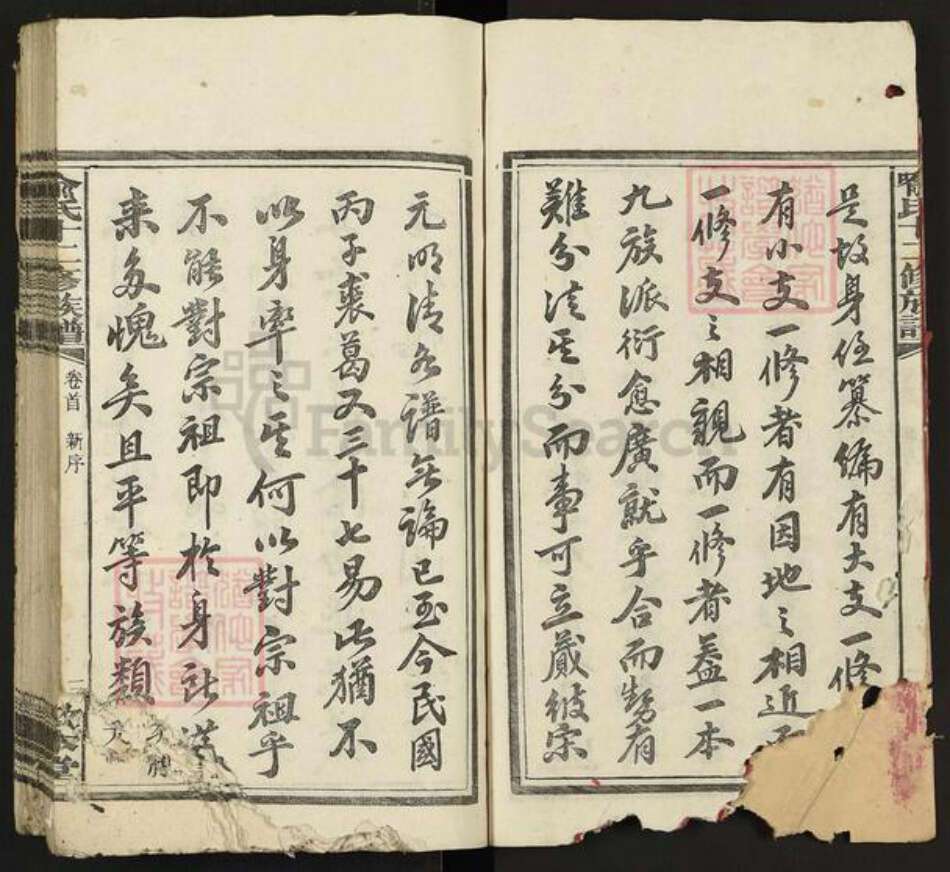 喻氏十二修族譜
是故身任纂編有大支一修
有小支一修者有因地之相近
一修支之相親而一修者蓋一本
九族派衍愈廣就乎合而勢有
難分法其分而事可立蕆彼宋
元明清各譜無論已至今民國
丙子裘葛又三十七易此猶不
以身率之其何以對宗祖乎
不能對宗祖即於身
來多愧矣且平等族類
俞氏十二修族譜
卷首 新序
FamilySearch